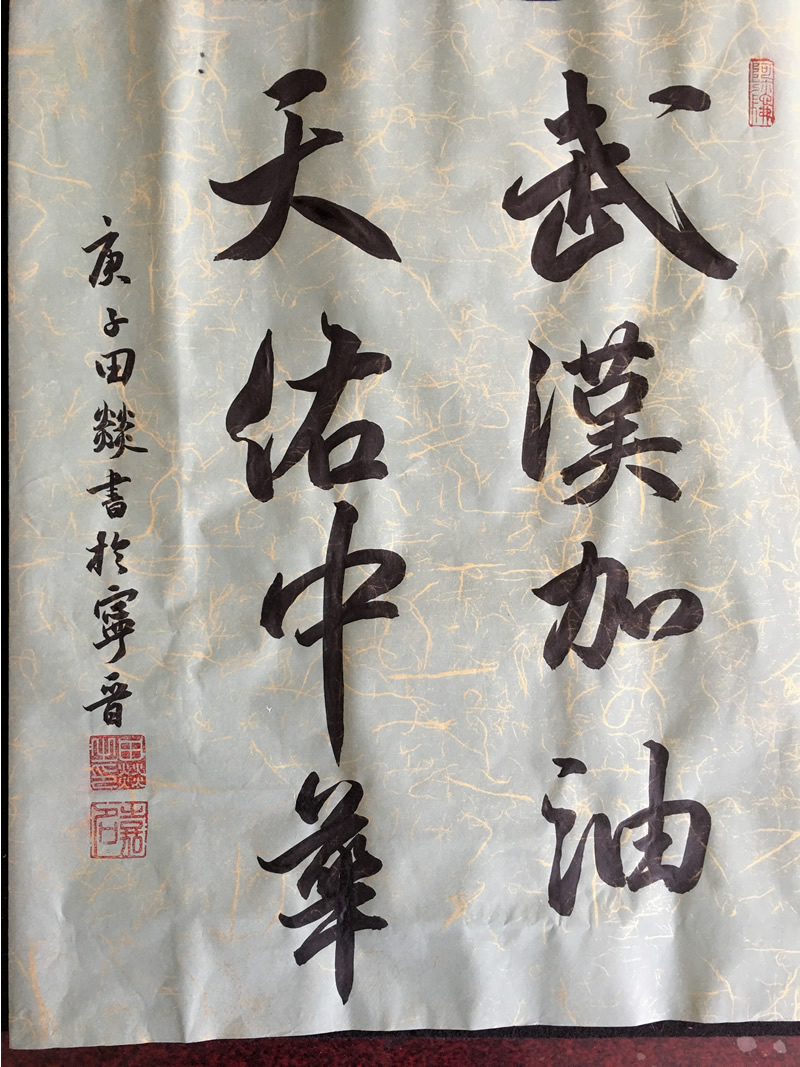 武漢加油
天佑中華
庚子田燚書於寧晉